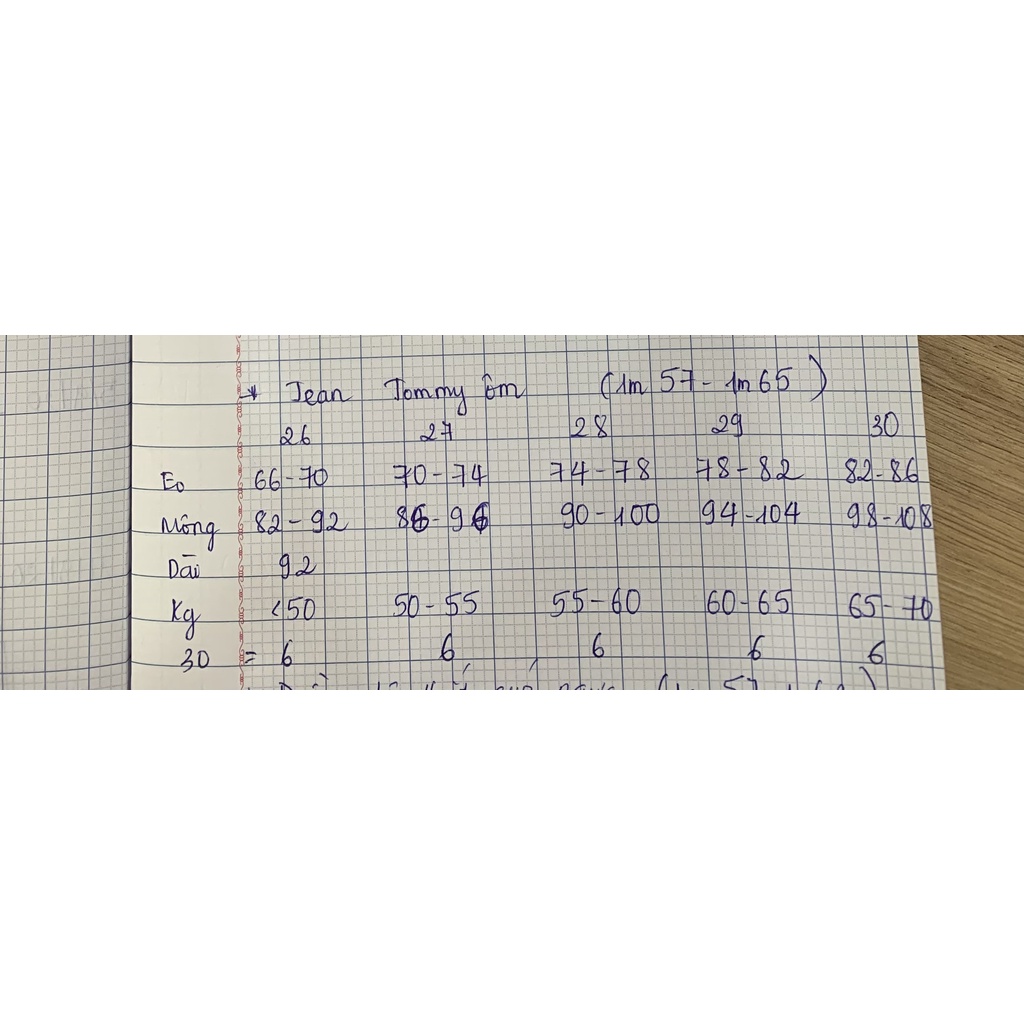 * Jean Tommy ôm (1m 57 - 1m 65)
26 27 28 29 30
Eo 66-70 70-74 74-78 78-82 82-86
Mông 82-92 86-96 90-100 94-104 98-108
Dài 92
Kg <50 50-55 55-60 60-65 65-70
30 = 6 6 6 6 6